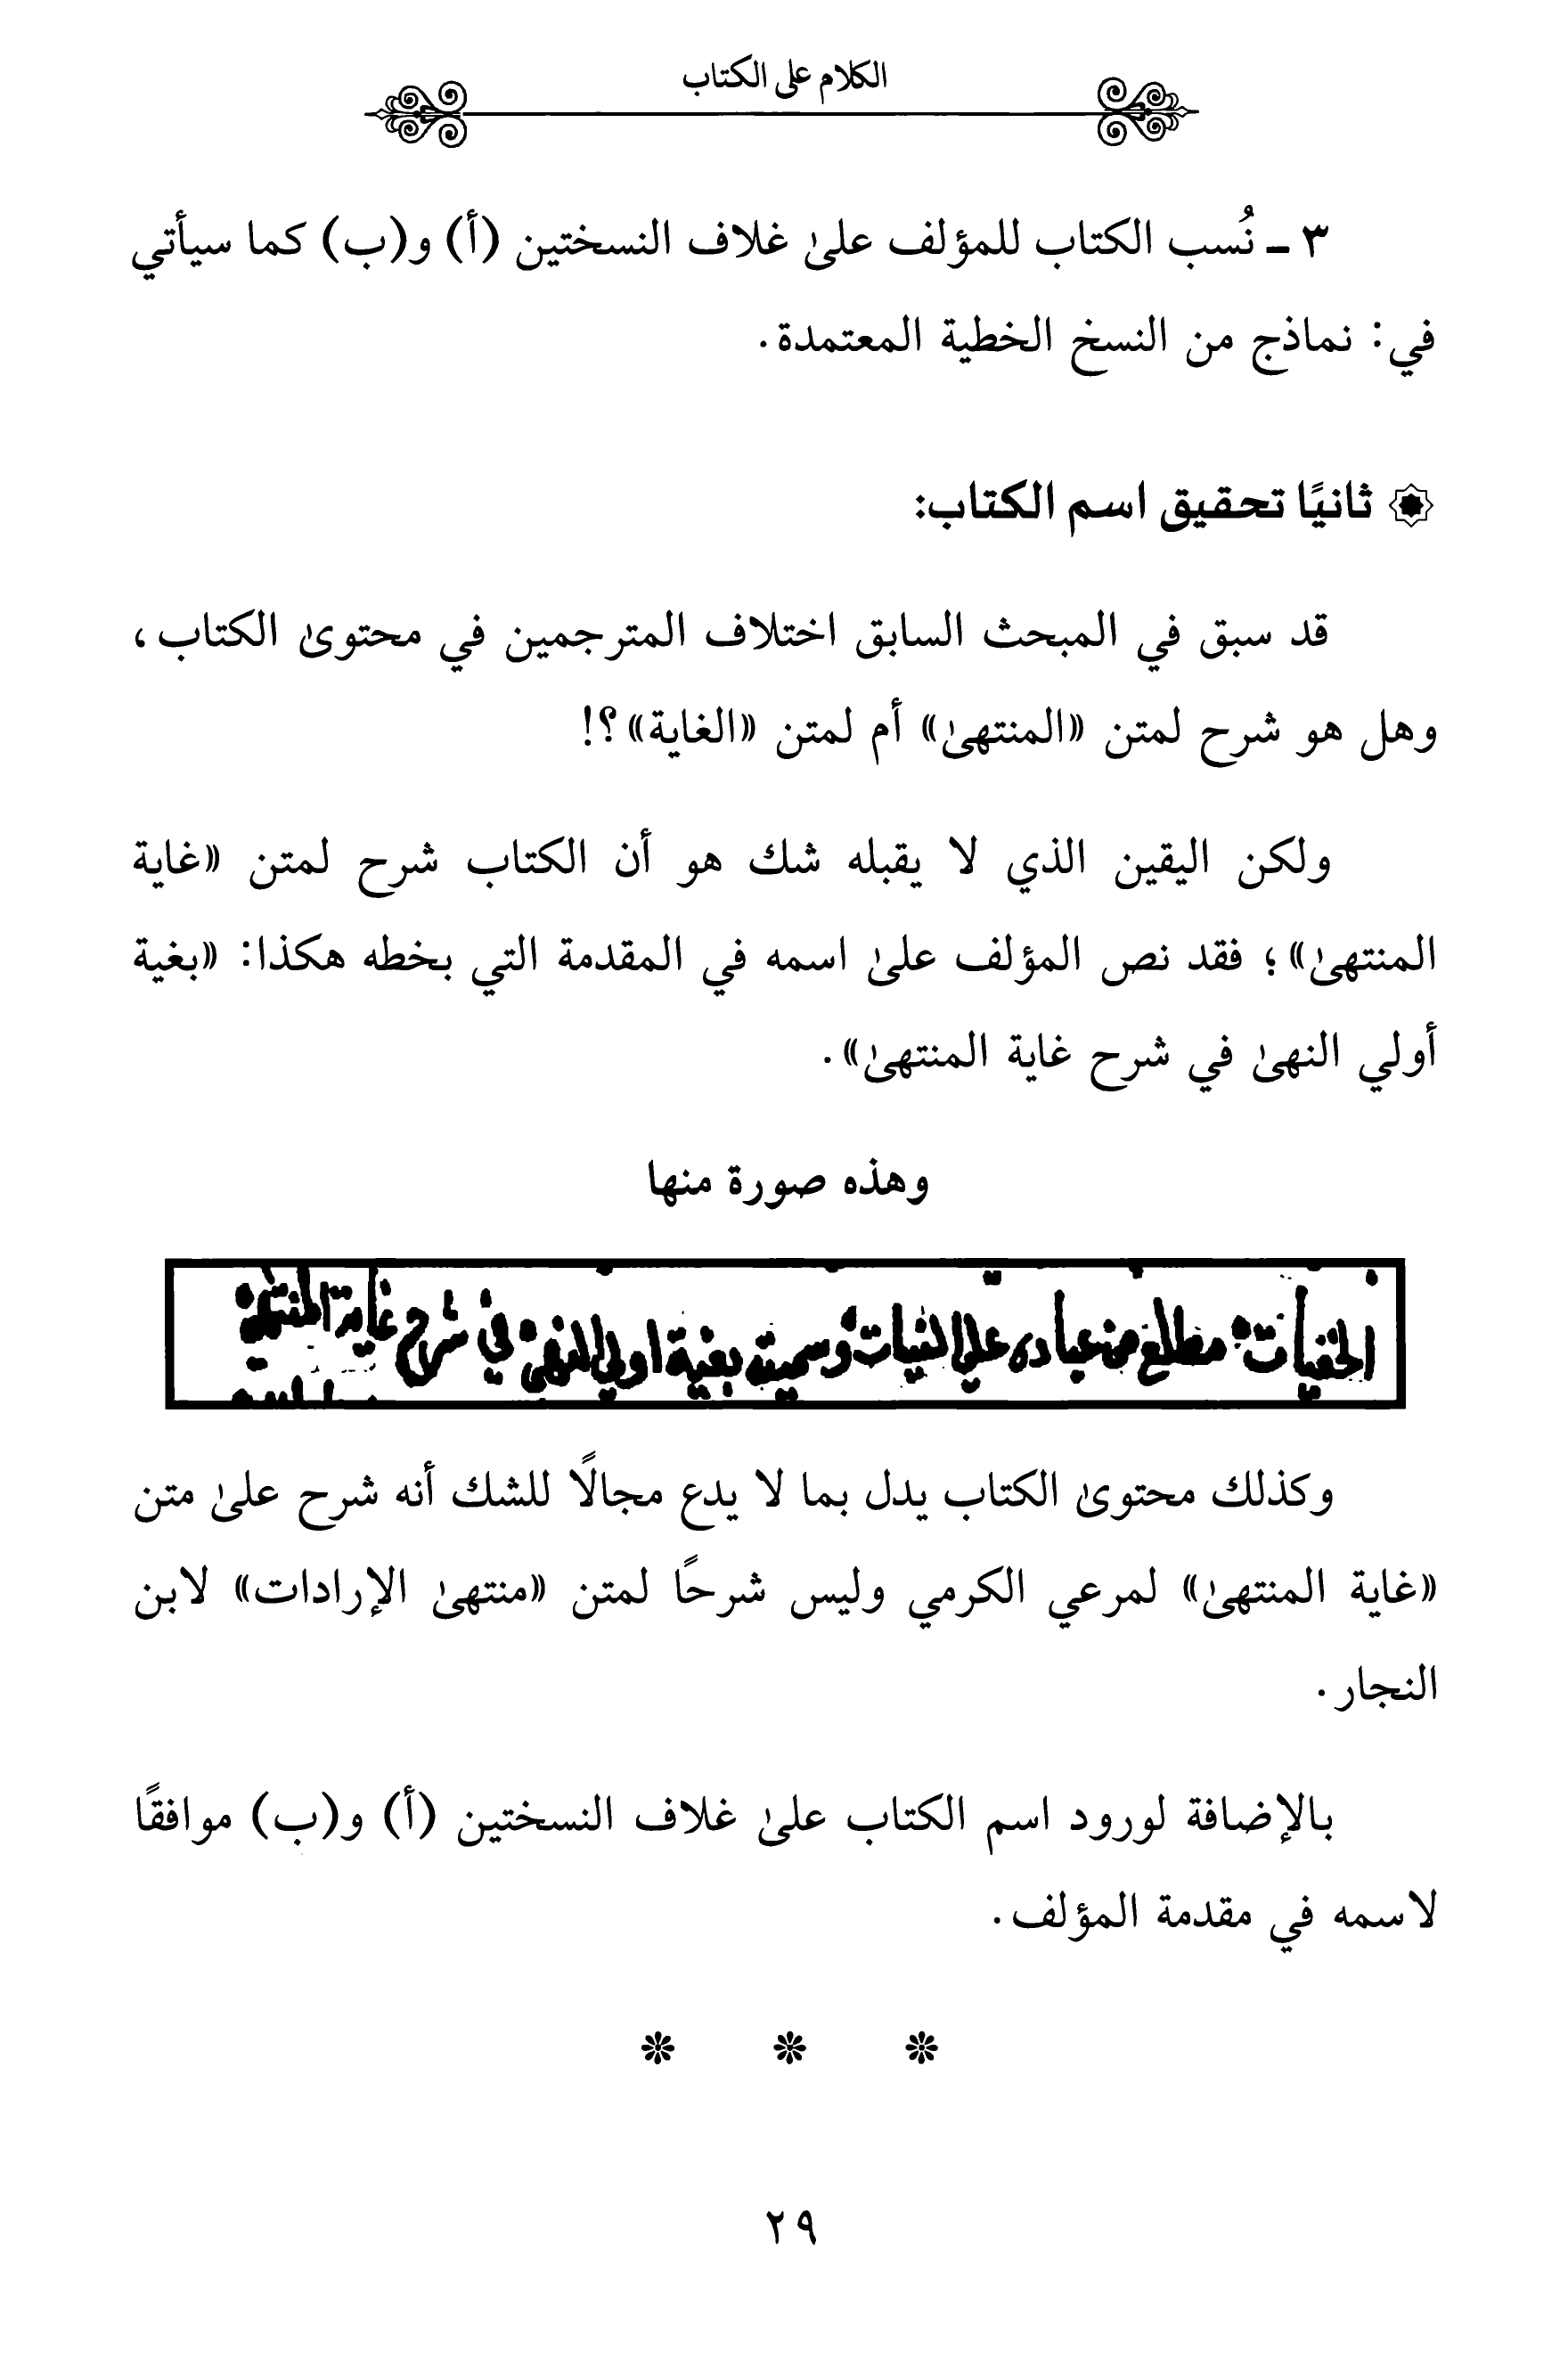 الكلام على الكتاب
٣ ـ نُسب الكتاب للمؤلف علىٰ غلاف النسختين (أ) و(ب) كما سيأتي
في: نماذج من النسخ الخطية المعتمدة.
ثانيًا تحقيق اسم الكتاب:
قد سبق في المبحث السابق اختلاف المترجمين في محتوىٰ الكتاب،
وهل هو شرح لمتن «المنتهىٰ» أم لمتن «الغاية»؟!
ولكن اليقين الذي لا يقبله شك هو أن الكتاب شرح لمتن «غاية
المنتهىٰ»؛ فقد نص المؤلف علىٰ اسمه في المقدمة التي بخطه هكذا: «بغية
أولي النهىٰ في شرح غاية المنتهىٰ».
وهذه صورة منها
الخفيات مطلع من عباده علي النيات وسميته بغية اولي النهى في شرح غاية المنتهى
وكذلك محتوىٰ الكتاب يدل بما لا يدع مجالًا للشك أنه شرح علىٰ متن
«غاية المنتهىٰ» لمرعي الكرمي وليس شرحًا لمتن «منتهىٰ الإرادات» لابن
النجار.
بالإضافة لورود اسم الكتاب علىٰ غلاف النسختين (أ) و(ب) موافقًا
لاسمه في مقدمة المؤلف.
٢٩